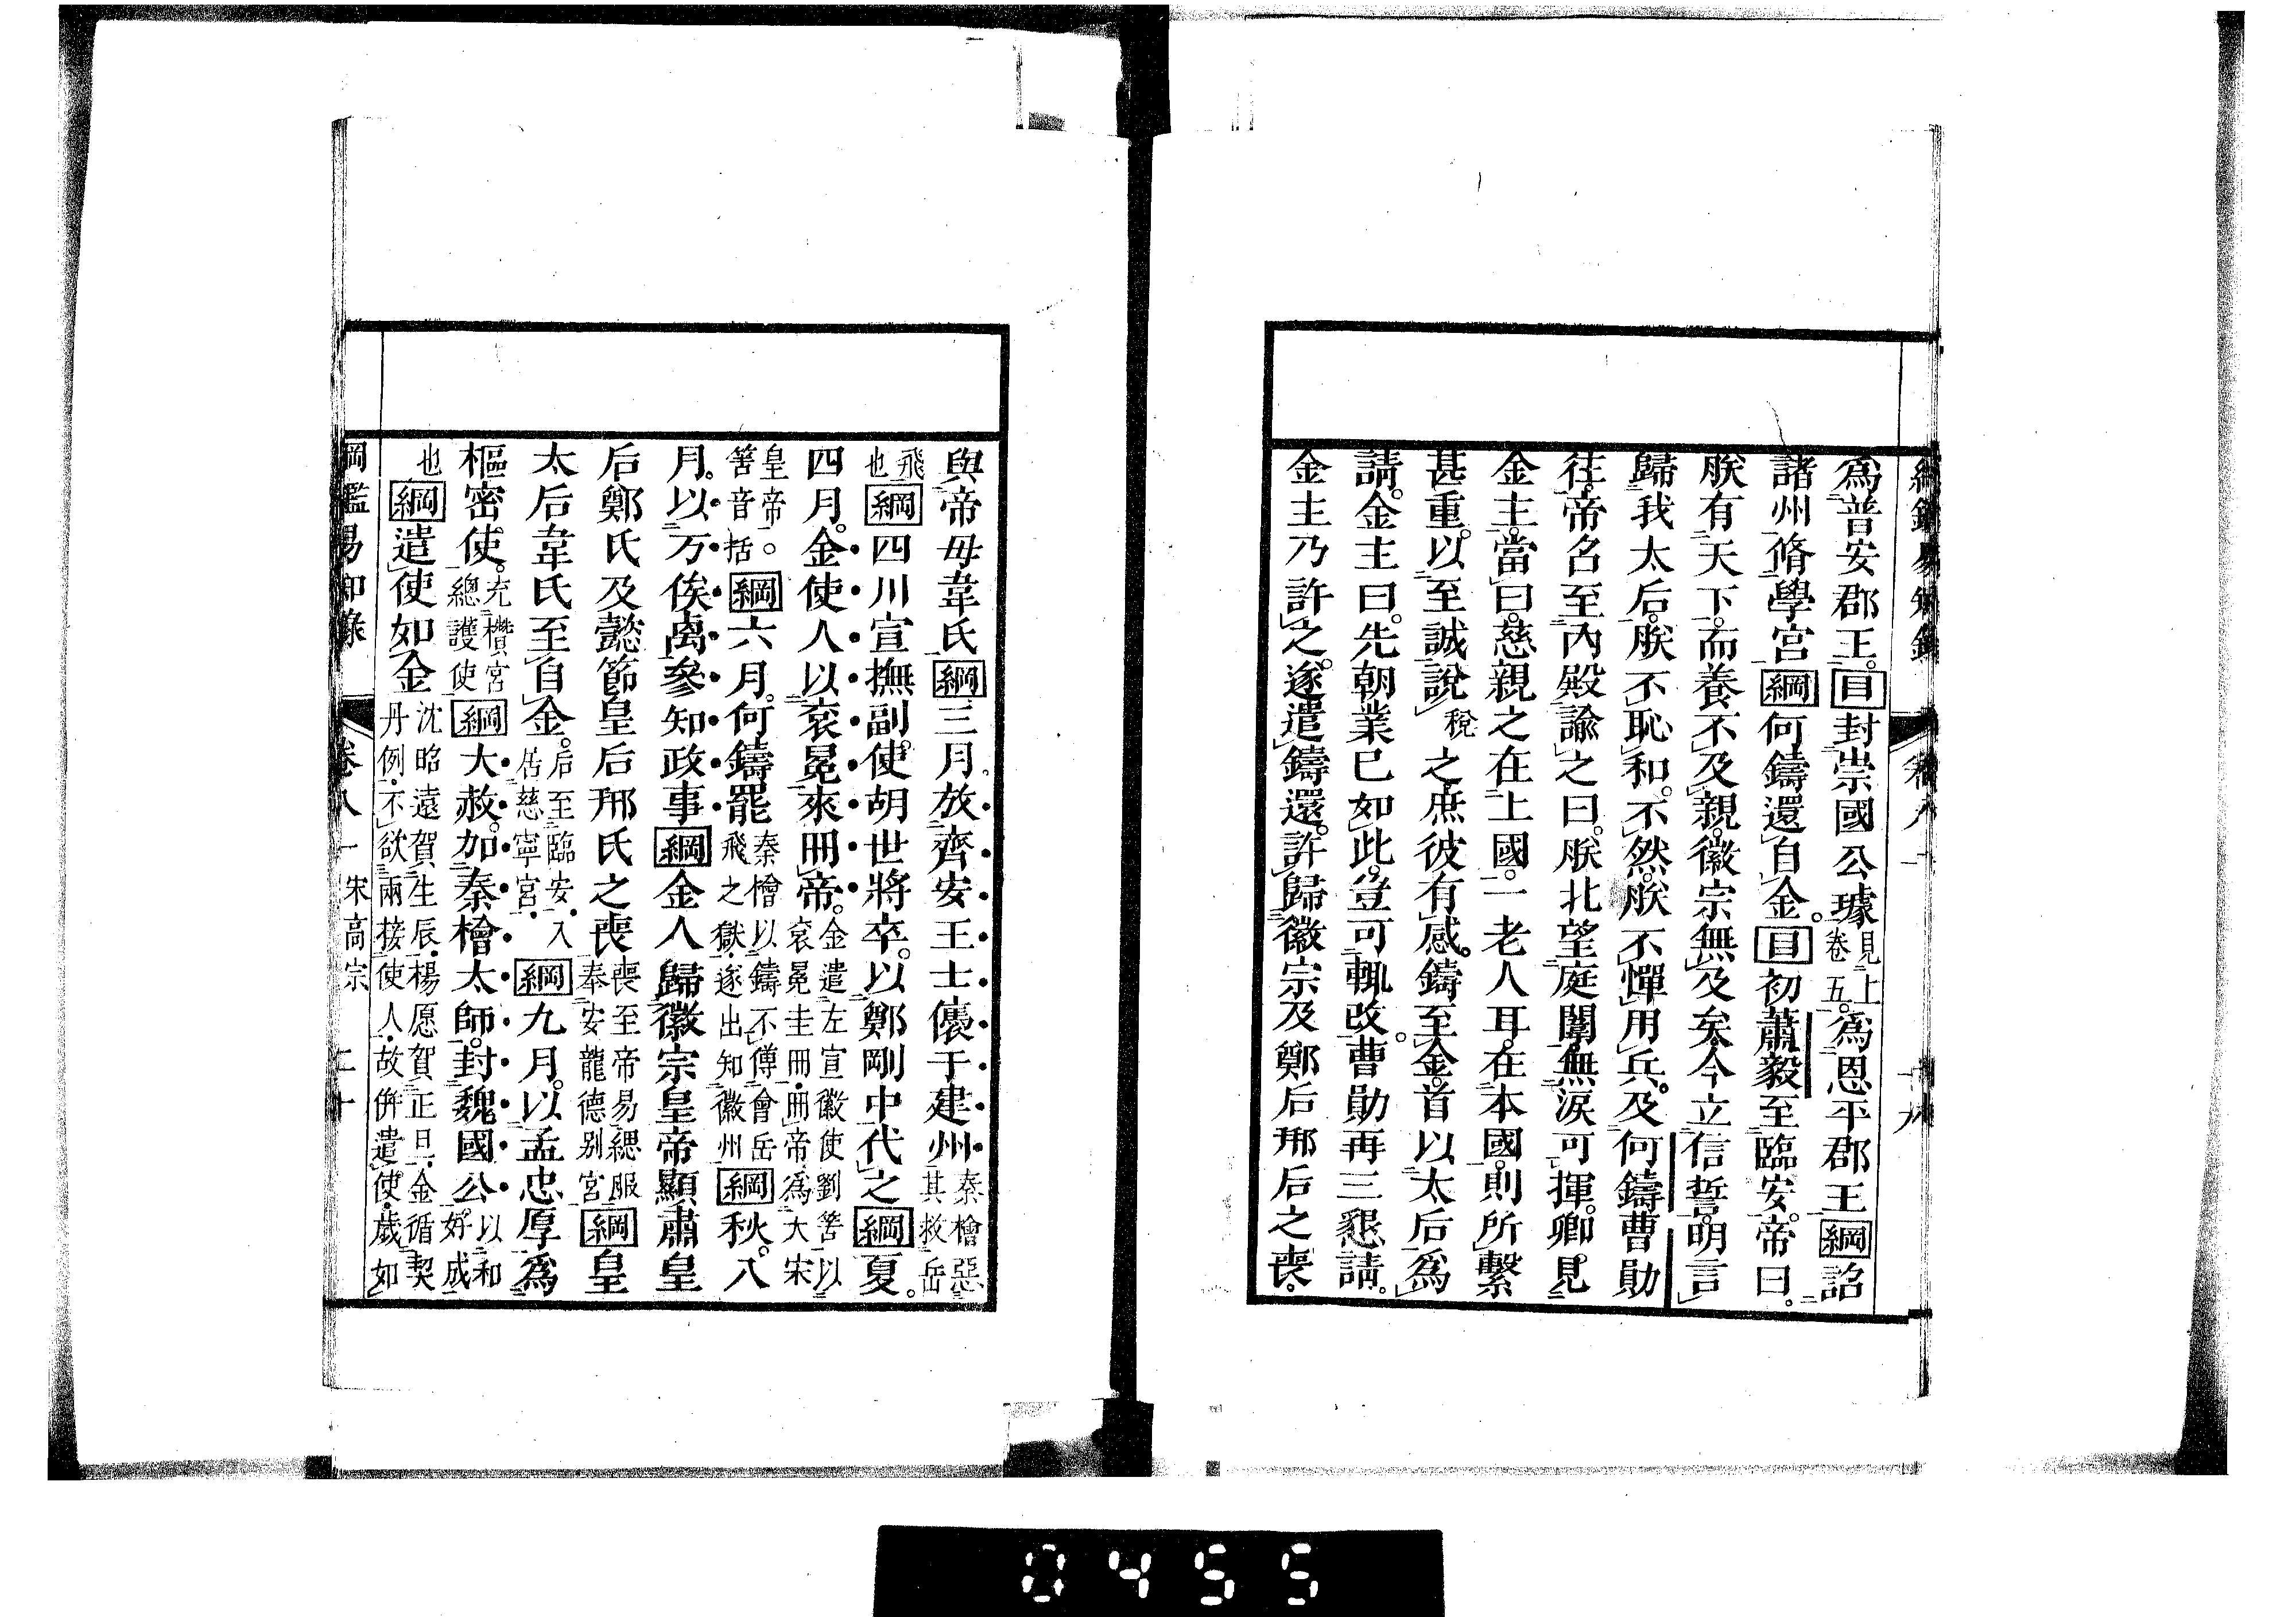 爲普安郡王。目封崇國公璩見上卷五。爲恩平郡王綱詔
諸州脩學宮綱何鑄還自金。目初蕭毅至臨安。帝曰。
朕有天下。而養不及親。徽宗無及矣。今立信誓。明言
歸我太后。朕不恥和。不然。朕不憚用兵。及何鑄曹勛
往。帝召至內殿。諭之曰。朕北望庭闈。無淚可揮。卿見
金主。當曰。慈親之在上國。一老人耳。在本國。則所繫
甚重。以至誠說稅之。庶彼有感。鑄至金。首以太后爲
請。金主曰。先朝業已如此。豈可輒改。曹勛再三懇請。
金主乃許之。遂遣鑄還。許歸徽宗及鄭后邢后之喪。
與帝母韋氏綱三月。放齊安王士㒟于建州秦檜惡其救岳
飛也綱四川宣撫副使胡世將卒。以鄭剛中代之綱夏。
四月。金使人以袞冕來冊帝。金遣左宣徽使劉筈以袞冕圭冊。冊帝爲大宋
皇帝。筈音括綱六月。何鑄罷秦檜以鑄不傅會岳飛之獄。遂出知徽州綱秋。八
月。以万俟卨參知政事綱金人歸徽宗皇帝顯肅皇
后鄭氏及懿節皇后邢氏之喪喪至帝易緦服奉安龍德别宮綱皇
太后韋氏至自金。后至臨安。入居慈寧宮。綱九月。以孟忠厚爲
樞密使。充欑宮總護使綱大赦。加秦檜太師。封魏國公。以和好成
也綱遣使如金沈昭遠賀生辰。楊愿賀正旦。金循契丹例。不欲兩接使人。故併遣使。歲如
綱鑑易知錄 卷八一 宋高宗 二十